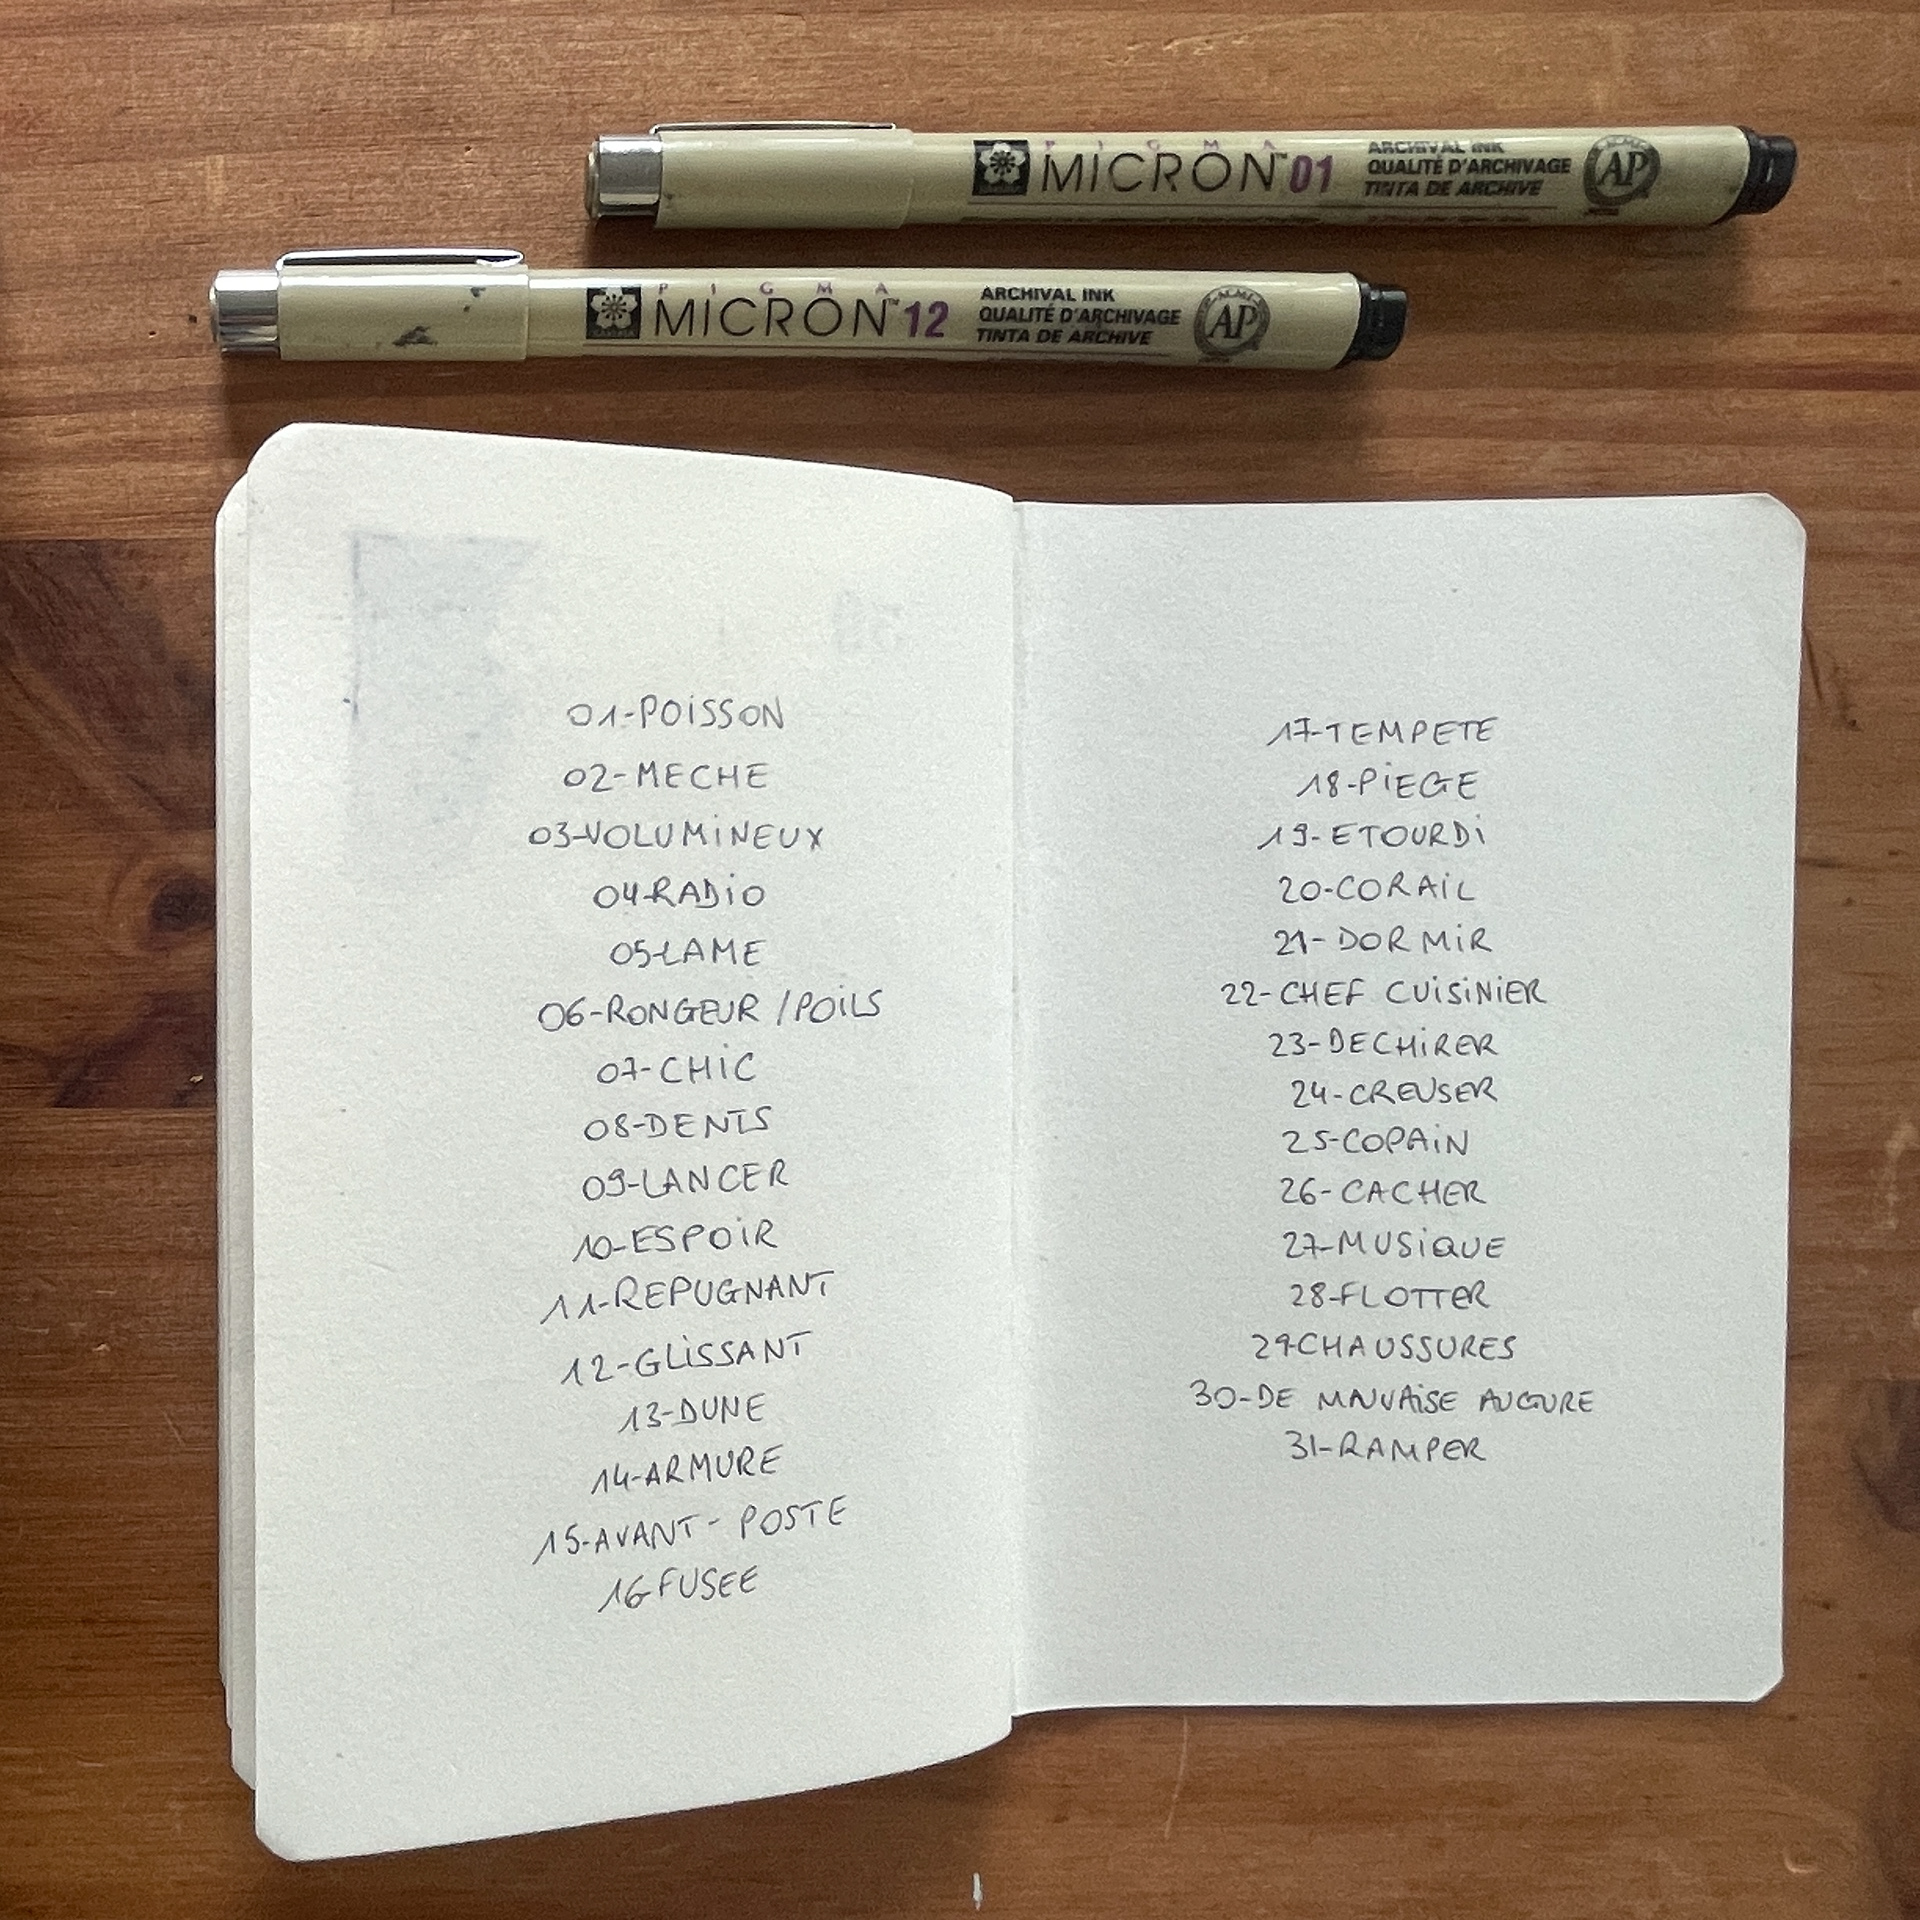 PIGMA
MICRON™ 01
ARCHIVAL INK
QUALITÉ D'ARCHIVAGE
TINTA DE ARCHIVE
AP
PIGMA
MICRON™ 12
ARCHIVAL INK
QUALITÉ D'ARCHIVAGE
TINTA DE ARCHIVE
AP
01-POISSON
02-MECHE
03-VOLUMINEUX
04-RADIO
05-LAME
06-RONGEUR /POILS
07-CHIC
08-DENTS
09-LANCER
10-ESPOIR
11-REPUGNANT
12-GLISSANT
13-DUNE
14-ARMURE
15-AVANT-POSTE
16-FUSEE
17-TEMPETE
18-PIEGE
19-ETOURDI
20-CORAIL
21-DORMIR
22-CHEF CUISINIER
23-DECHIRER
24-CREUSER
25-COPAIN
26-CACHER
27-MUSIQUE
28-FLOTTER
29-CHAUSSURES
30-DE MAUVAISE AUGURE
31-RAMPER